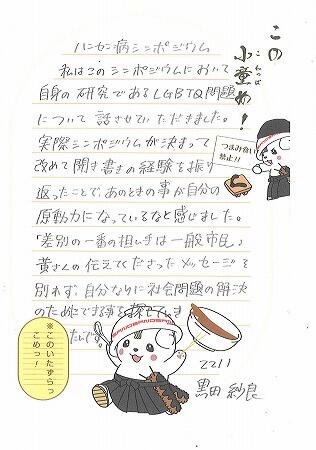 この
小童め！
こわっぱ
ハンセン病シンポジウム
私はこのシンポジウムにおいて
自身の研究であるLGBTQ問題
について話させていただきました。
実際シンポジウムが決まって
改めて聞き書きの経験を振り
返ったことで、あのときの事が自分の
原動力になっているなと感じました。
「差別の一番の担い手は一般市民」
黄さんの伝えてくださったメッセージを
別れず、自分なりに社会問題の解決
のためにできる事を探していき
たいです。
つまみ食い
禁止!!
※このいたずらっ
こめっ！
2211
黒田 紗良